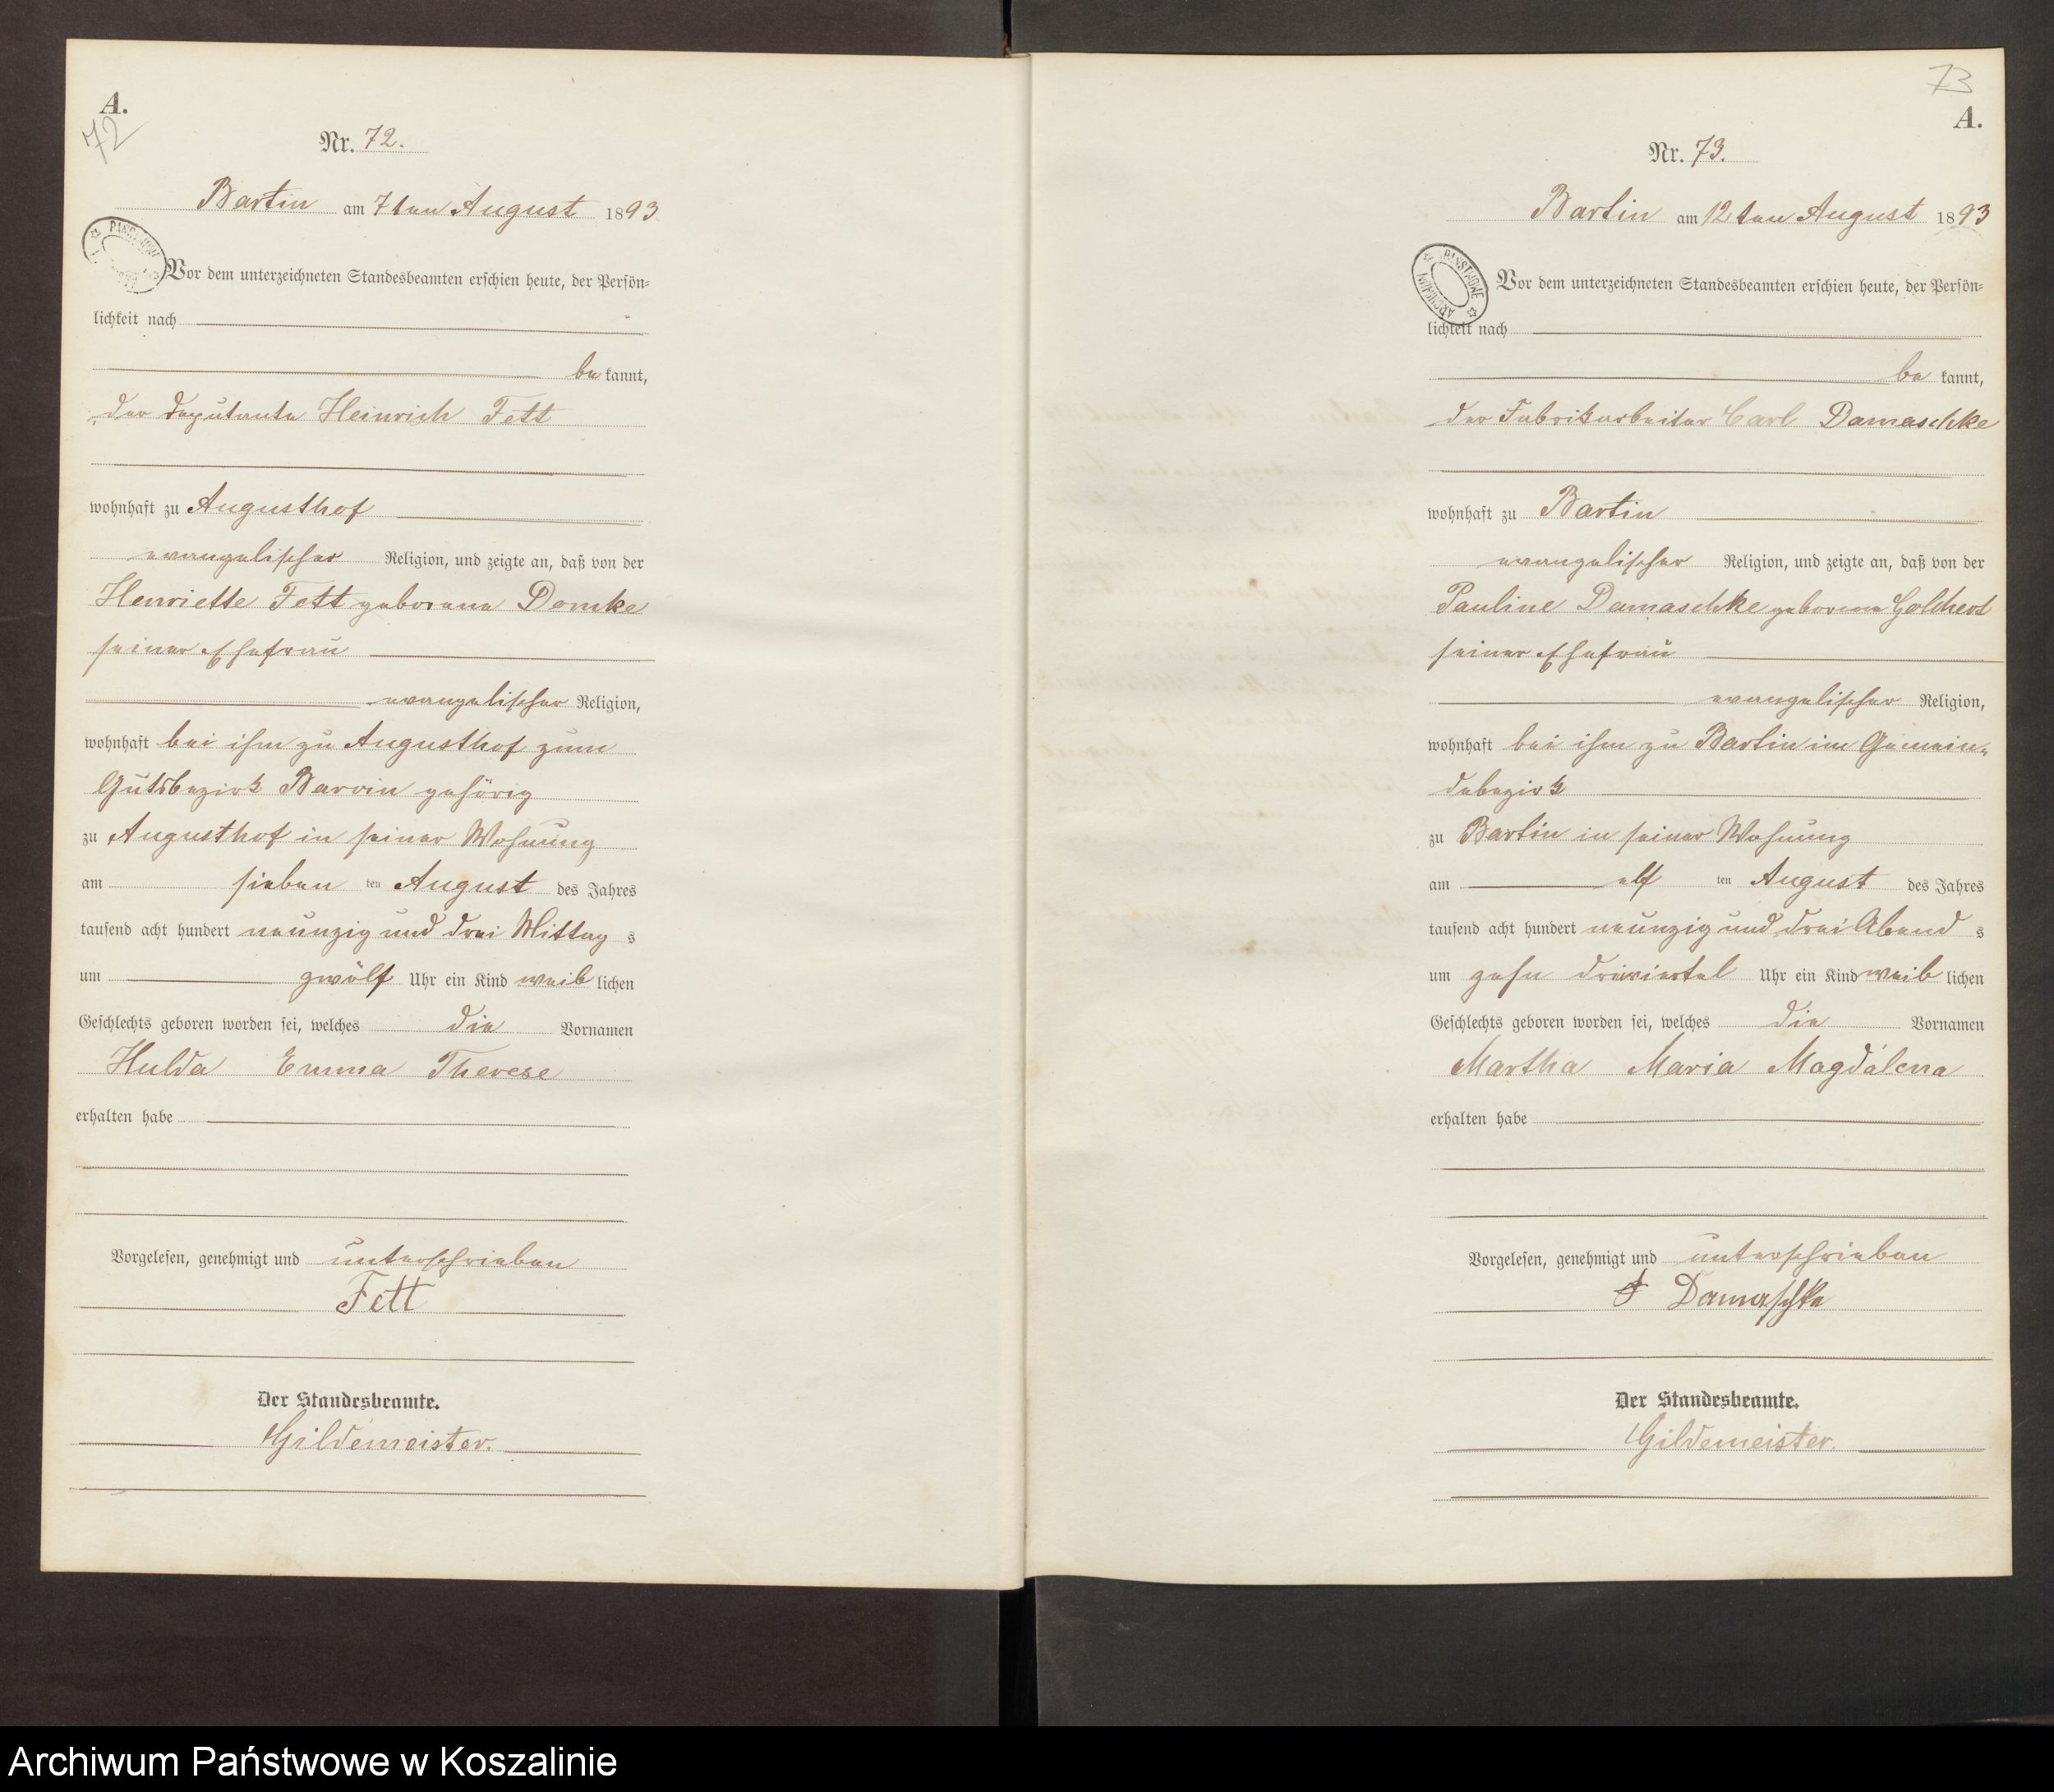 A.
72
Nr. 72.
Bartin am 7ten August 1893
Vor dem unterzeichneten Standesbeamten erschien heute, der Persön=
lichkeit nach
be kannt,
der Deputante Heinrich Fett
wohnhaft zu Augusthof
evangelischer Religion, und zeigte an, daß von der
Henriette Fett geborene Domke
seiner Ehefrau
evangelischer Religion,
wohnhaft bei ihm zu Augusthof zum
Gutsbezirk Barvin gehörig
zu Augusthof in seiner Wohnung
am sieben ten August des Jahres
tausend acht hundert neunzig und drei Mittag s
um zwölf Uhr ein Kind weib lichen
Geschlechts geboren worden sei, welches die Vornamen
Hulda Emma Therese
erhalten habe
Vorgelesen, genehmigt und unterschrieben
Fett
Der Standesbeamte.
Gildemeister.
73
A.
Nr. 73.
Bartin am 12ten August 1893
PAŃSTWOWE ARCHIWUM
Vor dem unterzeichneten Standesbeamten erschien heute, der Persön=
lichkeit nach
be kannt,
der Fabrikarbeiter Carl Damaschke
wohnhaft zu Bartin
evangelischer Religion, und zeigte an, daß von der
Pauline Damaschke geborene
seiner Ehefrau
evangelischer Religion,
wohnhaft bei ihm zu Bartin im Gemein=
debezirk
zu Bartin in seiner Wohnung
am elf ten August des Jahres
tausend acht hundert neunzig und drei Abend s
um zehn dreiviertel Uhr ein Kind weib lichen
Geschlechts geboren worden sei, welches die Vornamen
Martha Maria Magdalena
erhalten habe
Vorgelesen, genehmigt und unterschrieben
Damaschke
Der Standesbeamte.
Gildemeister.
Archiwum Państwowe w Koszalinie